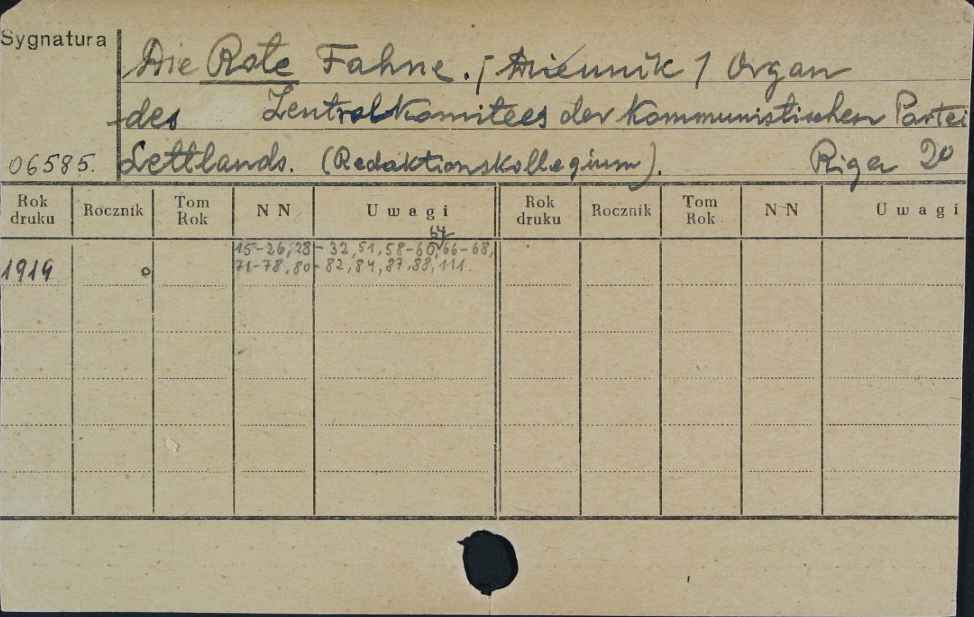 Sygnatura
Die Rote Fahne. / Dziennik / Organ
des Zentralkomitees der Kommunistischen Partei
06585. Lettlands. (Redaktionskollegium). Riga 2°
Rok druku Rocznik Tom Rok NN Uwagi Rok druku Rocznik Tom Rok NN Uwagi
64
15-26, 28-32, 51, 58-60, 66-68,
1919 0 71-78, 80-82, 84, 87, 88, 111.